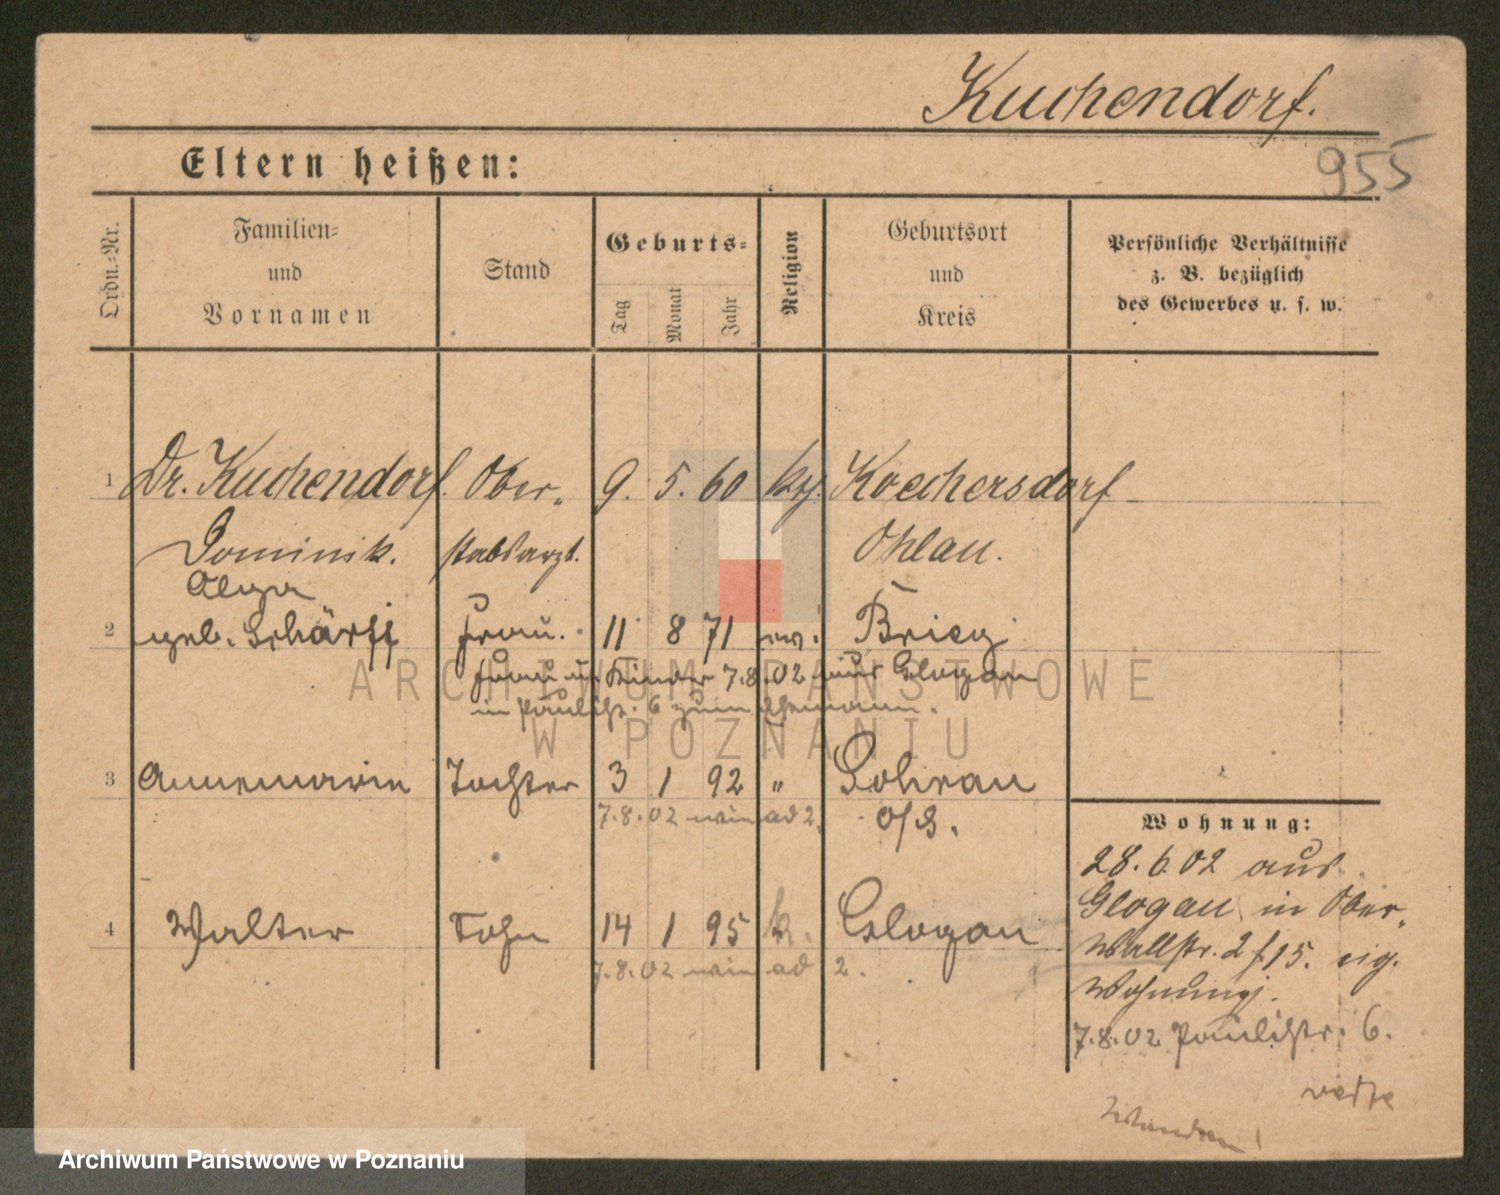 Kuchendorf.
955
Eltern heißen:
Ordn.=Nr.
Familien=
und
Vornamen
Stand
Geburts=
Tag
Monat
Jahr
Religion
Geburtsort
und
Kreis
Persönliche Verhältnisse
z. B. bezüglich
des Gewerbes u. s. w.
1 Dr. Kuchendorf. Ober= 9. 5. 60 Koechersdorf
Dominik. stabsarzt. Ohlau.
Olga
2 geb. Schärff Frau. 11 8 71 Brieg
Frau u. Kinder 7.8.02 aus Glogau
in Paulistr. 6 zum Ehemann.
ARCHIWUM PAŃSTWOWE
W POZNANIU
3 Annemarie Tochter 3 1 92 " Sohrau
7.8.02 wie ad 2. O/S.
4 Walter Sohn 14 1 95 k. Glogau
7.8.02 wie ad 2.
Wohnung:
28.6.02 aus
Glogau in Ober=
Wallstr. 2 f 15. eig.
Wohnung.
7.8.02 Paulistr. 6.
Archiwum Państwowe w Poznaniu